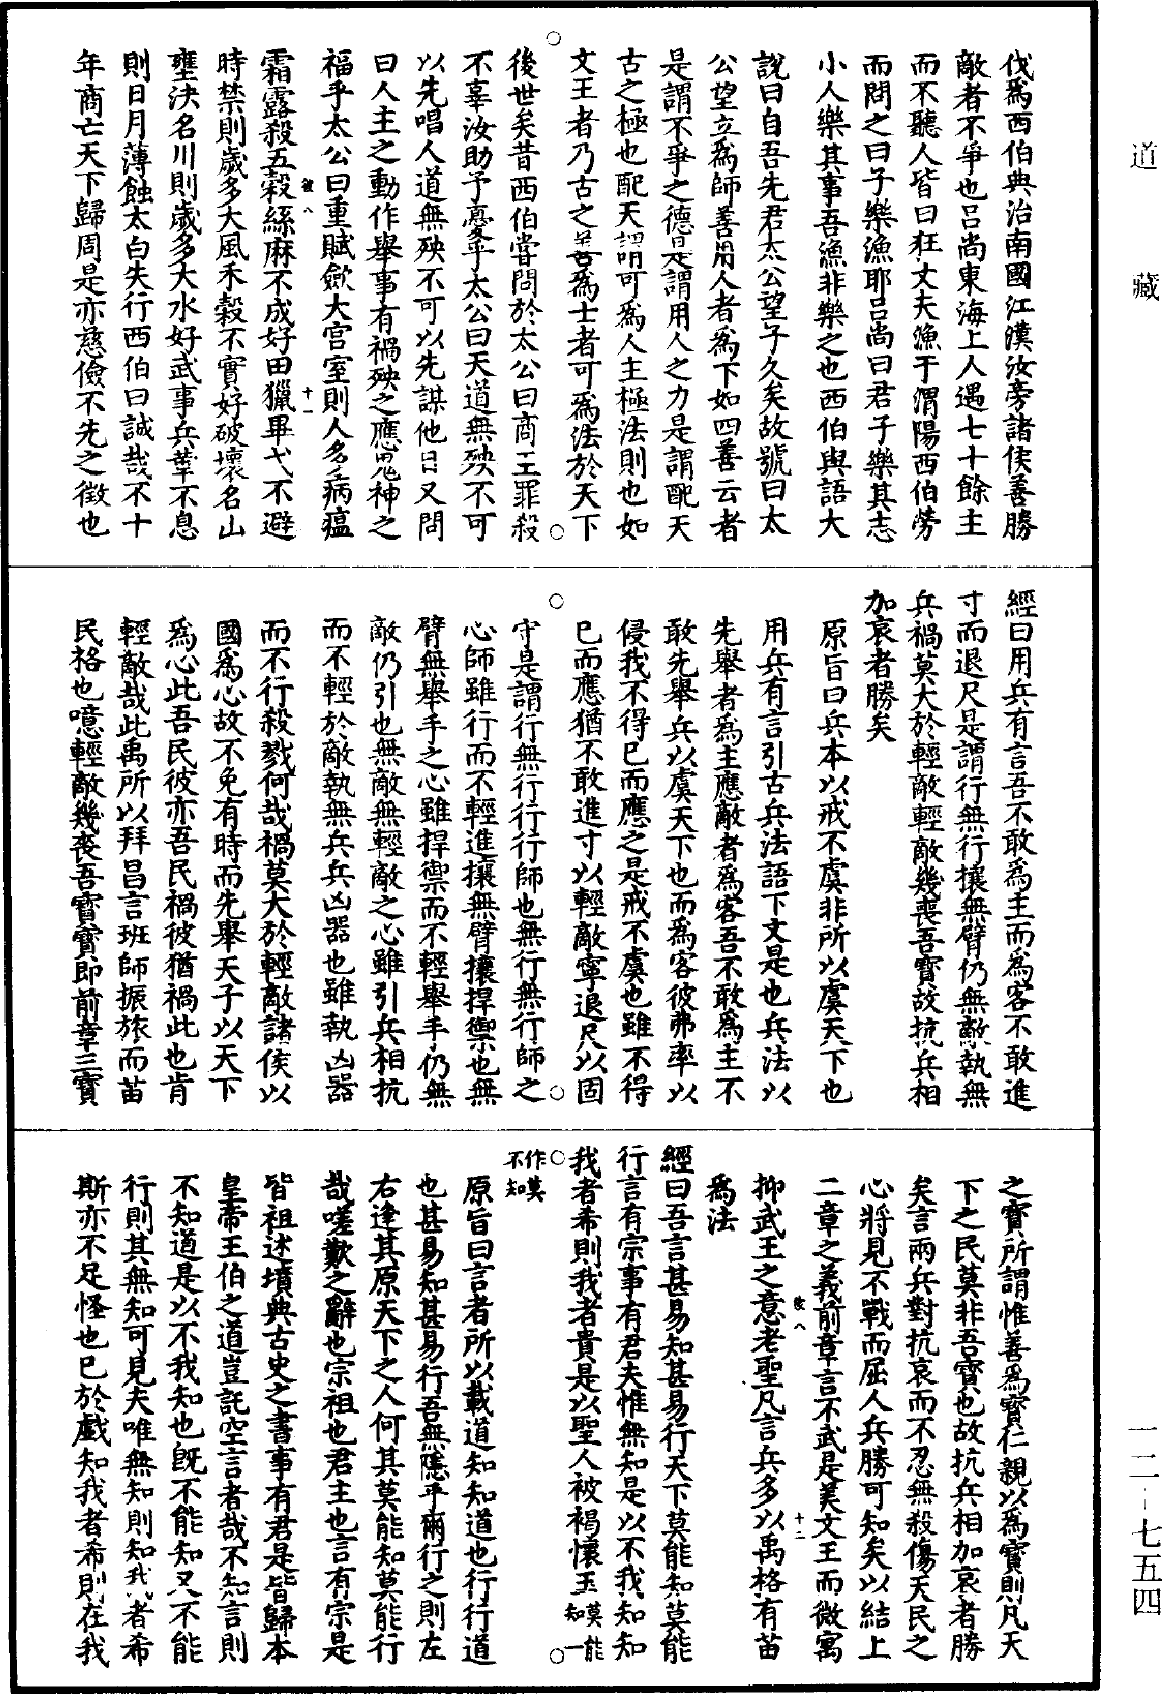 道藏
伐爲西伯典治南國江漢汝旁諸侯善勝
敵者不爭也呂尚東海上人遇七十餘主
而不聽人皆曰狂丈夫漁于渭陽西伯勞
而問之曰子樂漁耶呂尚曰君子樂其志
小人樂其事吾漁非樂之也西伯與語大
說曰自吾先君太公望子久矣故號曰太
公望立爲師善用人者爲下如四善云者
是謂不爭之德是謂用人之力是謂配天
古之極也配天謂可爲人主極法則也如
文王者乃古之善爲士者可爲法於天下
後世矣昔西伯嘗問於太公曰商王罪殺
不辜汝助予憂乎太公曰天道無殃不可
以先唱人道無殃不可以先謀他日又問
曰人主之動作舉事有禍殃之應鬼神之
福乎太公曰重賦歛大宮室則人多病瘟
霜露殺五穀絲麻不成好田獵畢弋不避
時禁則歲多大風禾穀不實好破壞名山
壅決名川則歲多大水好武事兵革不息
則日月薄蝕太白失行西伯曰誠哉不十
年商亡天下歸周是亦慈儉不先之徵也
彼八
十一
經曰用兵有言吾不敢爲主而爲客不敢進
寸而退尺是謂行無行攘無臂仍無敵執無
兵禍莫大於輕敵輕敵幾喪吾寶故抗兵相
加哀者勝矣
原旨曰兵本以戒不虞非所以虞天下也
用兵有言引古兵法語下文是也兵法以
先舉者爲主應敵者爲客吾不敢爲主不
敢先舉兵以虞天下也而爲客彼弗率以
侵我不得已而應之是戒不虞也雖不得
已而應猶不敢進寸以輕敵寧退尺以固
守是謂行無行行行師也無行無行師之
心師雖行而不輕進攘無臂攘捍禦也無
臂無舉手之心雖捍禦而不輕舉手仍無
敵仍引也無敵無輕敵之心雖引兵相抗
而不輕於敵執無兵兵凶器也雖執凶器
而不行殺戮何哉禍莫大於輕敵諸侯以
國爲心故不免有時而先舉天子以天下
爲心此吾民彼亦吾民禍彼猶禍此也肯
輕敵哉此禹所以拜昌言班師振旅而苗
民格也噫輕敵幾喪吾寶寶即前章三寶
之寶所謂惟善爲寶仁親以爲寶則凡天
下之民莫非吾寶也故抗兵相加哀者勝
矣言兩兵對抗哀而不忍無殺傷天民之
心將見不戰而屈人兵勝可知矣以結上
二章之義前章言不武是美文王而微寓
抑武王之意老聖凡言兵多以禹格有苗
爲法
彼八
十二
經曰吾言甚易知甚易行天下莫能知莫能
行言有宗事有君夫惟無知是以不我知知
我者希則我者貴是以聖人被褐懷玉莫能知一
作莫不知
原旨曰言者所以載道知知道也行行道
也甚易知甚易行吾無隱乎爾行之則左
右逢其原天下之人何其莫能知莫能行
哉嗟歎之辭也宗祖也君主也言有宗是
皆祖述墳典古史之書事有君是皆歸本
皇帝王伯之道豈託空言者哉不知言則
不知道是以不我知也旣不能知又不能
行則其無知可見夫唯無知則知我者希
斯亦不足怪也已於戲知我者希則在我
一二-七五四